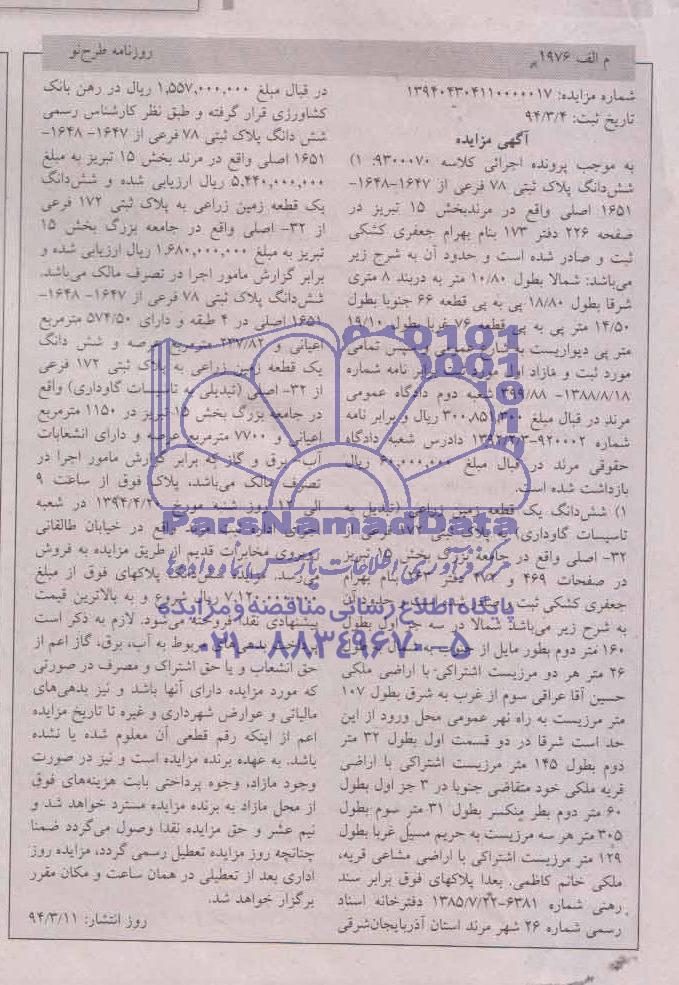 م الف ۱۹۷۶
روزنامه طرح‌نو
شماره مزایده: ۱۳۹۴۰۴۳۰۴۱۱۰۰۰۰۰۱۷
تاریخ ثبت: ۹۴/۳/۴
آگهی مزایده
به موجب پرونده اجرائی کلاسه ۹۳۰۰۰۷۰: ۱)
ششدانگ پلاک ثبتی ۷۸ فرعی از ۱۶۴۷-۱۶۴۸-
۱۶۵۱ اصلی واقع در مرندبخش ۱۵ تبریز در
صفحه ۲۲۶ دفتر ۱۷۳ بنام بهرام جعفری کشکی
ثبت و صادر شده است و حدود آن به شرح زیر
می‌باشد: شمالا بطول ۱۰/۸۰ متر به دربند ۸ متری
شرقا بطول ۱۸/۸۰ پی به پی قطعه ۶۶ جنوبا بطول
۱۴/۵۰ متر پی به پی قطعه ۷۶ غربا بطول ۱۹/۱۰
متر پی دیواریست به شارع عمومی و سپس تمامی
مورد ثبت و مازاد اول مورد ثبت برابر نامه شماره
۱۳۸۸/۸/۱۸- ۳۹۹/۸۸ شعبه دوم دادگاه عمومی
مرند در قبال مبلغ ۳۰۰،۸۵۱،۳۰۰ ریال و برابر نامه
شماره ۹۲۰۰۰۲-۱۳۹۲/۲/۳ دادرس شعبه دادگاه
حقوقی مرند در قبال مبلغ ۶۰،۰۰۰،۰۰۰ ریال
بازداشت شده است.
۱) شش‌دانگ یک قطعه زمین زراعی (تبدیل به
تاسیسات گاوداری) به پلاک ثبتی ۱۷۲ فرعی از
۳۲- اصلی واقع در جامعه بزرگ بخش ۱۵ تبریز
در صفحات ۴۶۹ و ۴۷۲ دفتر بنام بهرام
جعفری کشکی ثبت و صادر شده است و حدود آن
به شرح زیر می‌باشد: شمالا در سه جز اول بطول
۱۶۰ متر دوم بطور مایل از جنوب به شمال بطول
۲۶ متر هر دو مرزیست اشتراکی با اراضی ملکی
حسین آقا عراقی سوم از غرب به شرق بطول ۱۰۷
متر مرزیست به راه نهر عمومی محل ورود از این
حد است شرقا در دو قسمت اول بطول ۳۲ متر
دوم بطول ۱۴۵ متر مرزیست اشتراکی با اراضی
قریه ملکی خود متقاضی جنوبا در ۳ جز اول بطول
۶۰ متر دوم بطر منکسر بطول ۳۱ متر سوم بطول
۳۰۵ متر هر سه مرزیست به حریم مسیل غربا بطول
۱۲۹ متر مرزیست اشتراکی با اراضی مشاعی قریه،
ملکی خانم کاظمی. بعدا پلاکهای فوق برابر سند
رهنی شماره ۶۳۸۱-۱۳۸۵/۷/۲۲ دفترخانه اسناد
رسمی شماره ۲۶ شهر مرند استان آذربایجان‌شرقی
در قبال مبلغ ۱،۵۵۷،۰۰۰،۰۰۰ ریال در رهن بانک
کشاورزی قرار گرفته و طبق نظر کارشناس رسمی
شش دانگ پلاک ثبتی ۷۸ فرعی از ۱۶۴۷- ۱۶۴۸-
۱۶۵۱ اصلی واقع در مرند بخش ۱۵ تبریز به مبلغ
۵،۴۴۰،۰۰۰،۰۰۰ ریال ارزیابی شده و شش‌دانگ
یک قطعه زمین زراعی به پلاک ثبتی ۱۷۲ فرعی
از ۳۲- اصلی واقع در جامعه بزرگ بخش ۱۵
تبریز به مبلغ ۱،۶۸۰،۰۰۰،۰۰۰ ریال ارزیابی شده و
برابر گزارش مامور اجرا در تصرف مالک می‌باشد.
شش‌دانگ پلاک ثبتی ۷۸ فرعی از ۱۶۴۷- ۱۶۴۸-
۱۶۵۱ اصلی در ۴ طبقه و دارای ۵۷۴/۵۰ مترمربع
اعیانی و ۲۳۷/۸۲ مترمربع عرصه و شش دانگ
یک قطعه زمین زراعی به پلاک ثبتی ۱۷۲ فرعی
از ۳۲- اصلی (تبدیلی به تاسیسات گاوداری) واقع
در جامعه بزرگ بخش ۱۵ تبریز در ۱۱۵۰ مترمربع
اعیانی و ۷۷۰۰ مترمربع عرصه و دارای انشعابات
آب- برق و گاز که برابر گزارش مامور اجرا در
تصرف مالک می‌باشد، پلاک فوق از ساعت ۹
الی ۱۲ روز شنبه مورخ ۱۳۹۴/۴/۲۰ در شعبه
اجرای اداره ثبت مرند واقع در خیابان طالقانی
روبروی مخابرات قدیم از طریق مزایده به فروش
می‌رسد. مزایده شش‌دانگ پلاکهای فوق از مبلغ
۷،۱۲۰،۰۰۰،۰۰۰ ریال شروع و به بالاترین قیمت
پیشنهادی نقدا فروخته می‌شود. لازم به ذکر است
پرداخت بدهی‌های مربوط به آب، برق، گاز اعم از
حق انشعاب و یا حق اشتراک و مصرف در صورتی
که مورد مزایده دارای آنها باشد و نیز بدهی‌های
مالیاتی و عوارض شهرداری و غیره تا تاریخ مزایده
اعم از اینکه رقم قطعی آن معلوم شده یا نشده
باشد. به عهده برنده مزایده است و نیز در صورت
وجود مازاد، وجوه پرداختی بابت هزینه‌های فوق
از محل مازاد به برنده مزایده مسترد خواهد شد و
نیم عشر و حق مزایده نقدا وصول می‌گردد ضمنا
چنانچه روز مزایده تعطیل رسمی گردد، مزایده روز
اداری بعد از تعطیلی در همان ساعت و مکان مقرر
برگزار خواهد شد.
روز انتشار: ۹۴/۳/۱۱
ParsNamadData
مرکز فرآوری اطلاعات پارس نماد داده‌ها
پایگاه اطلاع رسانی مناقصه و مزایده
۰۲۱-۸۸۳۴۹۶۷۰-۵